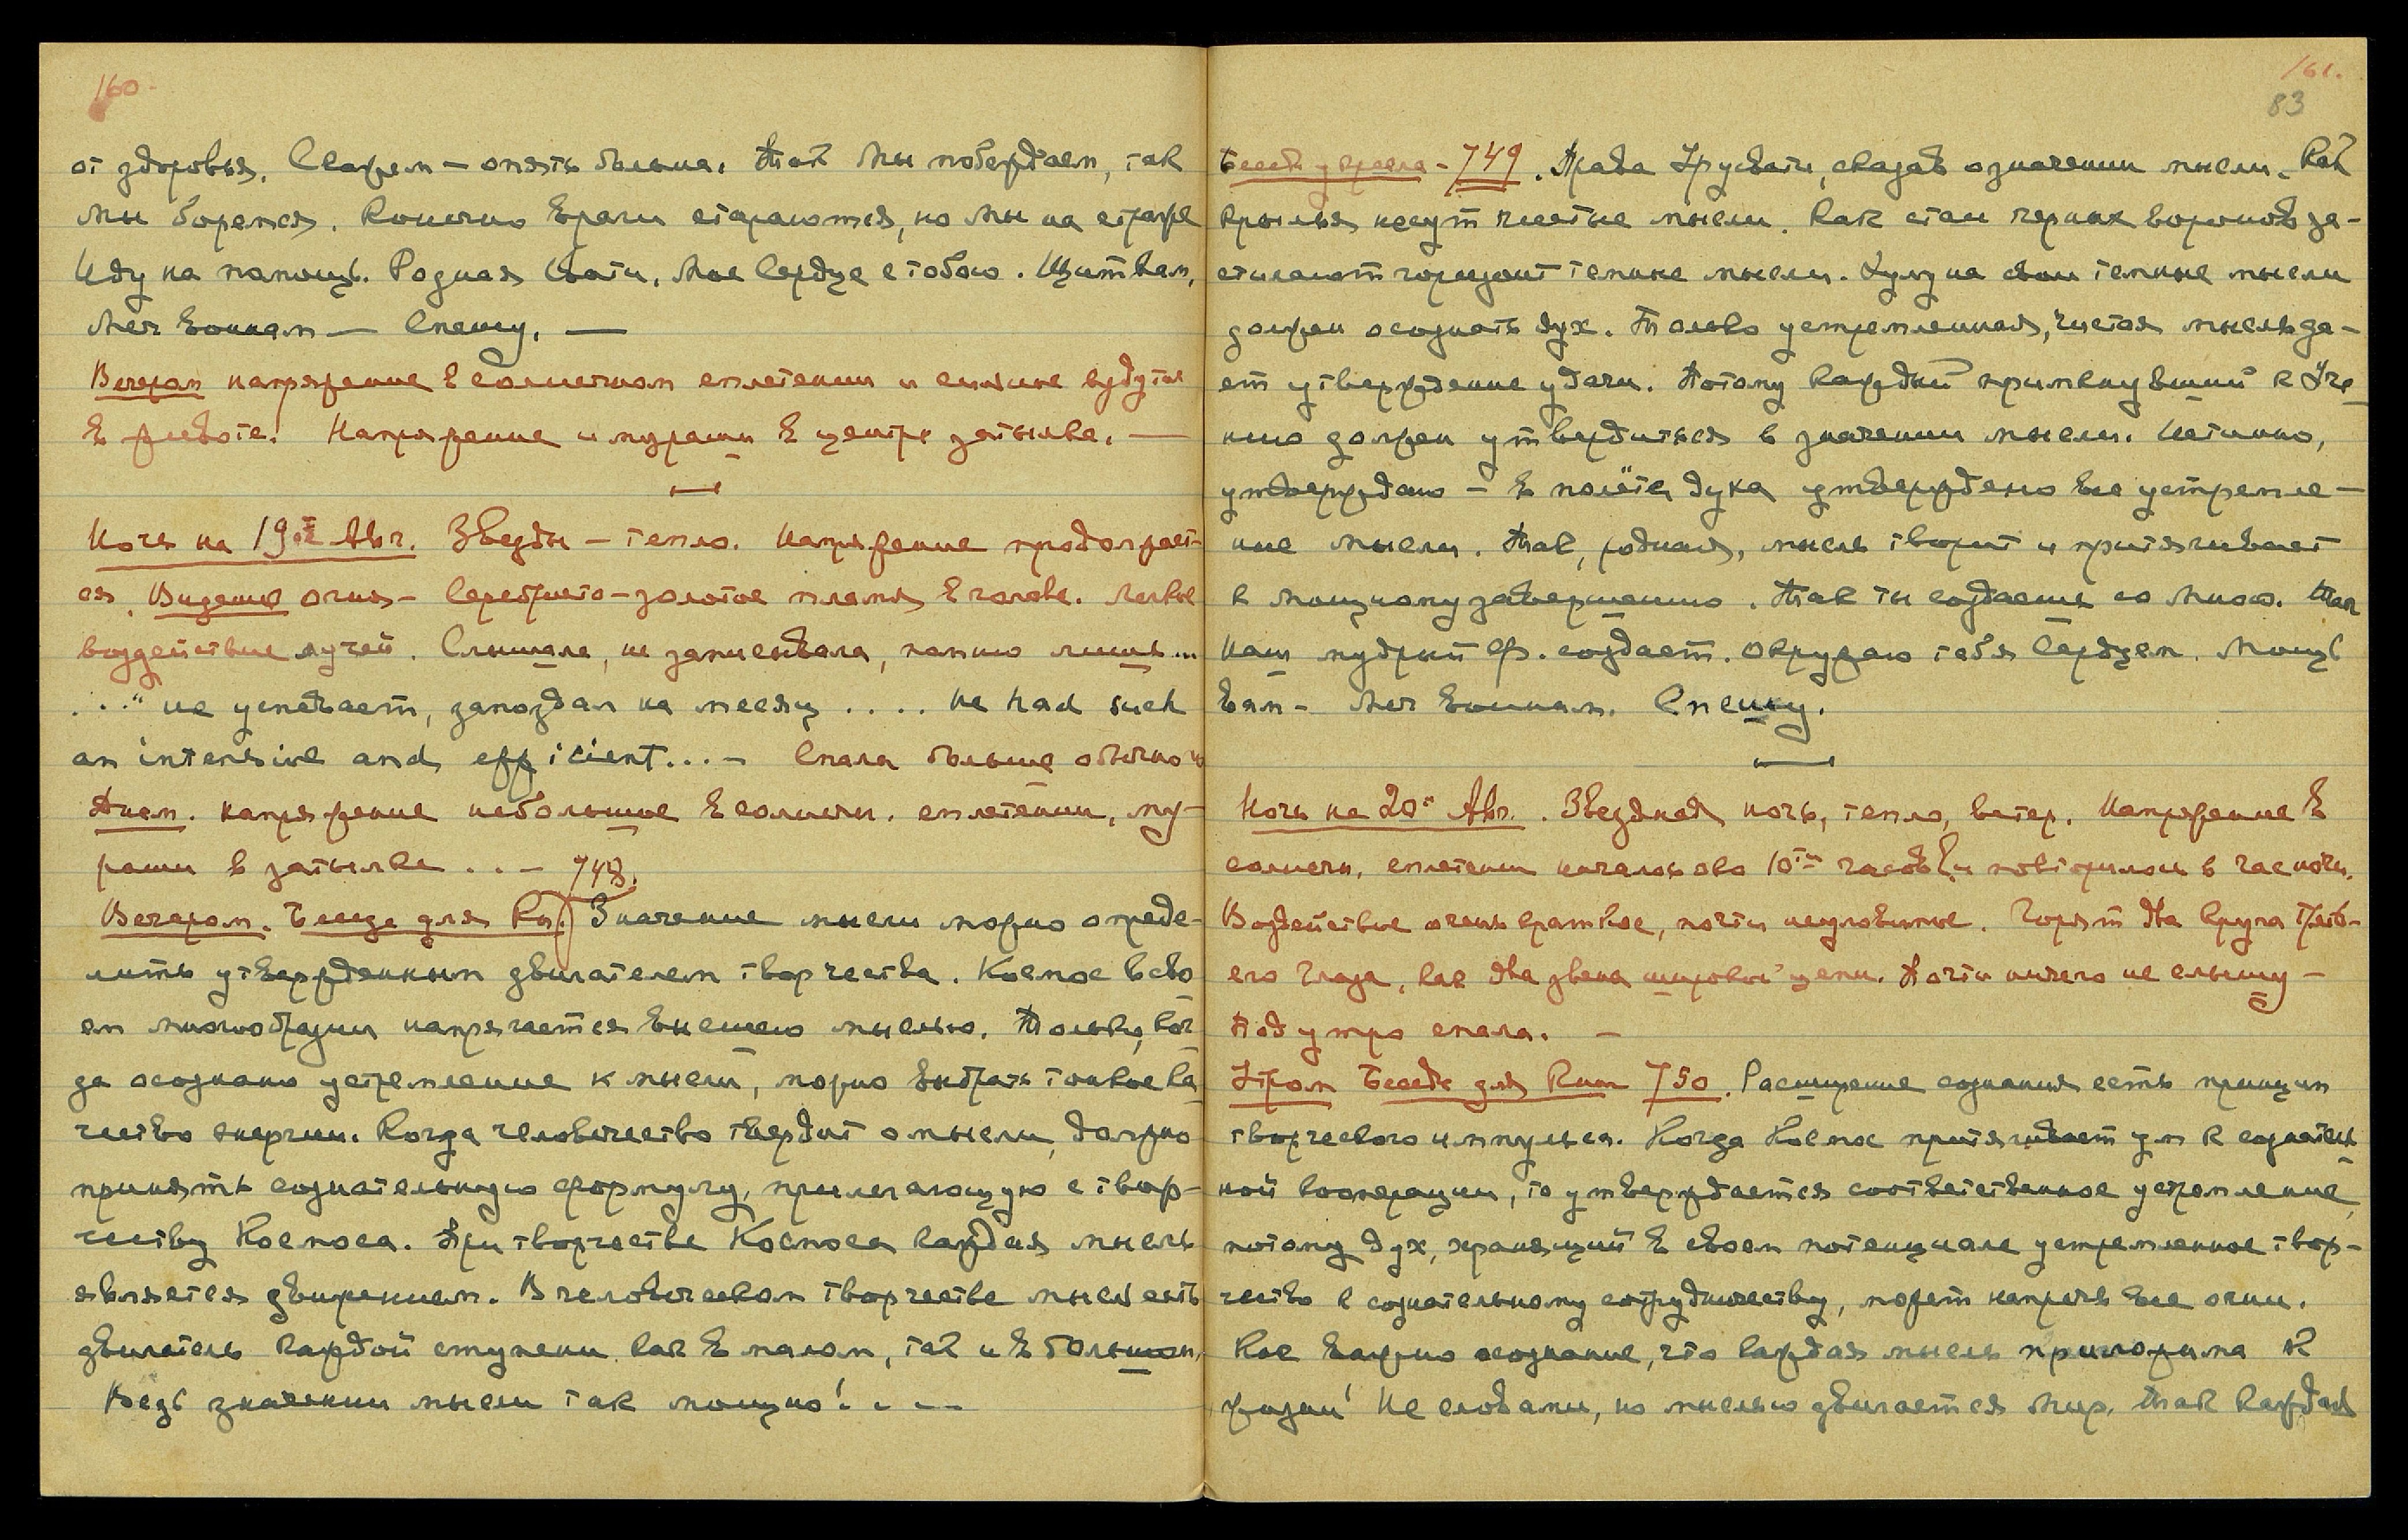 160.
от здоровья. Скажем — опять больше. Так Мы побеждаем, так
мы боремся. Конечно враги стараются, но Мы на страже
Иду на помощь. Родная Свати, Мое Сердце с тобою. Щит вам,
Меч Воинам — Спешу. —
Вечером напряжение в солнечном сплетении и сильное вздутие
в животе. Напряжение и мурашки в центре затылка. —
Ночь на 19ое Авг. Звезды — тепло. Напряжение продолжает-
ся. Видение огня — Серебристо-золотое пламя в голове. Легкое
воздействие лучей. Слышала, не записывала, помню лишь...
..." не успевает, запоздал на месяц .... he had such
an intensive and efficient...— Спала больше обычного
Днем. напряжение небольшое в солнечн. сплетении, му-
рашки в затылке . . — 748.
Вечером. Беседа для Кн. Значение мысли можно опреде-
лить утвержденным двигателем творчества. Космос в сво
ем многообразии напрягается высшею мыслью. Только, ког
да осознано устремление к мысли, можно выбрать тонкое ка
чество энергии. Когда человечество твердит о мысли, должно
принять сознательную формулу, прилегающую с твор-
честву Космоса. При творчестве Космоса каждая мысль
является движением. В человеческом творчестве мысль есть
двигатель каждой ступени как в малом, так и в большом,
Ведь значении мысли так мощно! . . —
161.
83
Беседа у кресла - 749. Права Урусвати, сказав о значении мысли. Как
крылья несут чистые мысли. Как стаи черных воронов за-
стилают горизонт темные мысли. Хулу на свои темные мысли
должен осознать дух. Только устремленная, чистая мысль да-
ет утверждение удачи. Потому каждый примкнувший к Уче
нию должен утвердиться в значении мысли. Истинно,
утверждаю — в полёте духа утверждено все устремле-
ние мысли. Так, родная, мысль творит и притягивает
к мощному завершению. Так ты создаешь со Мною. Так
Наш мудрый Ф. создает. Окружаю тебя Сердцем. Мощь
вам — Меч Воинам. Спешу.
Ночь на 20ое Авг. Звездная ночь, тепло, ветер. Напряжение в
солнечн. сплетении началось око 10ти часов и повторилось в час ночи.
Воздействие очень краткое, почти неуловимое. Горят два круга Треть-
его Глаза, как два звена широкой цепи. Почти ничего не слышу —
Под утро спала. —
Утром Беседа для Книги 750. Расширение сознания есть принцип
творческого импульса. Когда Космос притягивает ум к сознатель
ной кооперации, то утверждается соответственное устремление,
потому дух, хранящий в своем потенциале устремленное твор-
чество к сознательному сотрудничеству, может напрячь все огни.
Как важно осознание, что каждая мысль приложима к
жизни! Не словами, но мыслью движется Мир. Так каждая